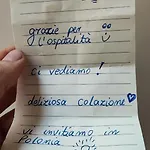 grazie per
l'ospitalità
ci vediamo!
deliziosa colazione
vi invitiamo in
Polonia